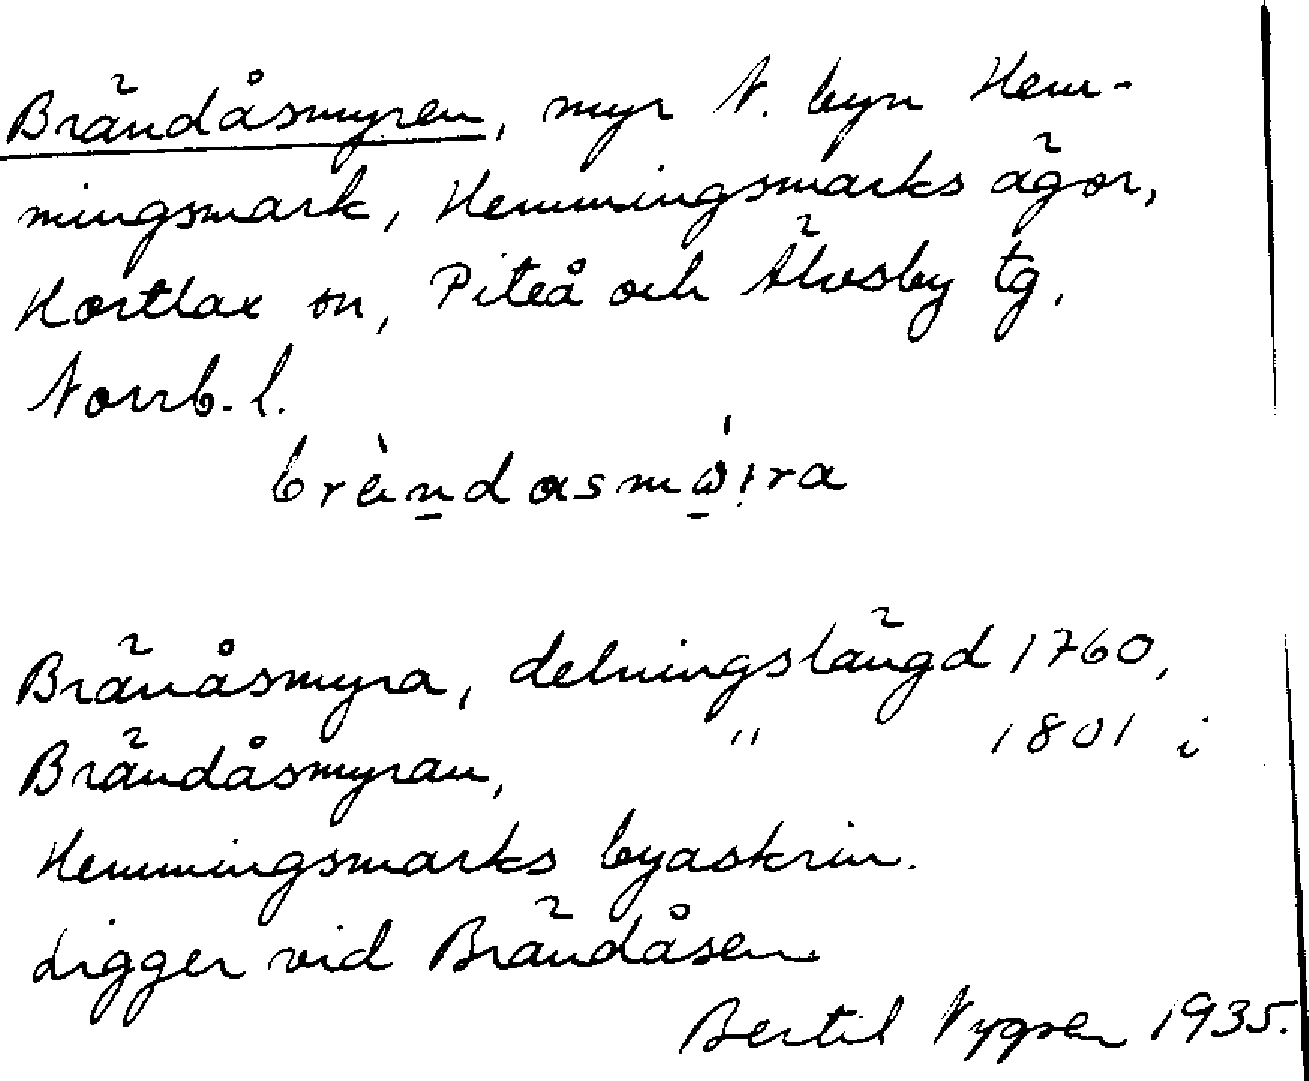 Brändåsmyren, myr N. byn Hem-
mingsmark, Hemmingsmarks ägor,
Hortlax sn, Piteå och Älvsby tg,
Norrb. l.
Bränåsmyra, delningslängd 1760,
Brändåsmyran, " 1801 i
Hemmingsmarks byaskrin.
Ligger vid Brändåsen
Bertil Nygren 1935.